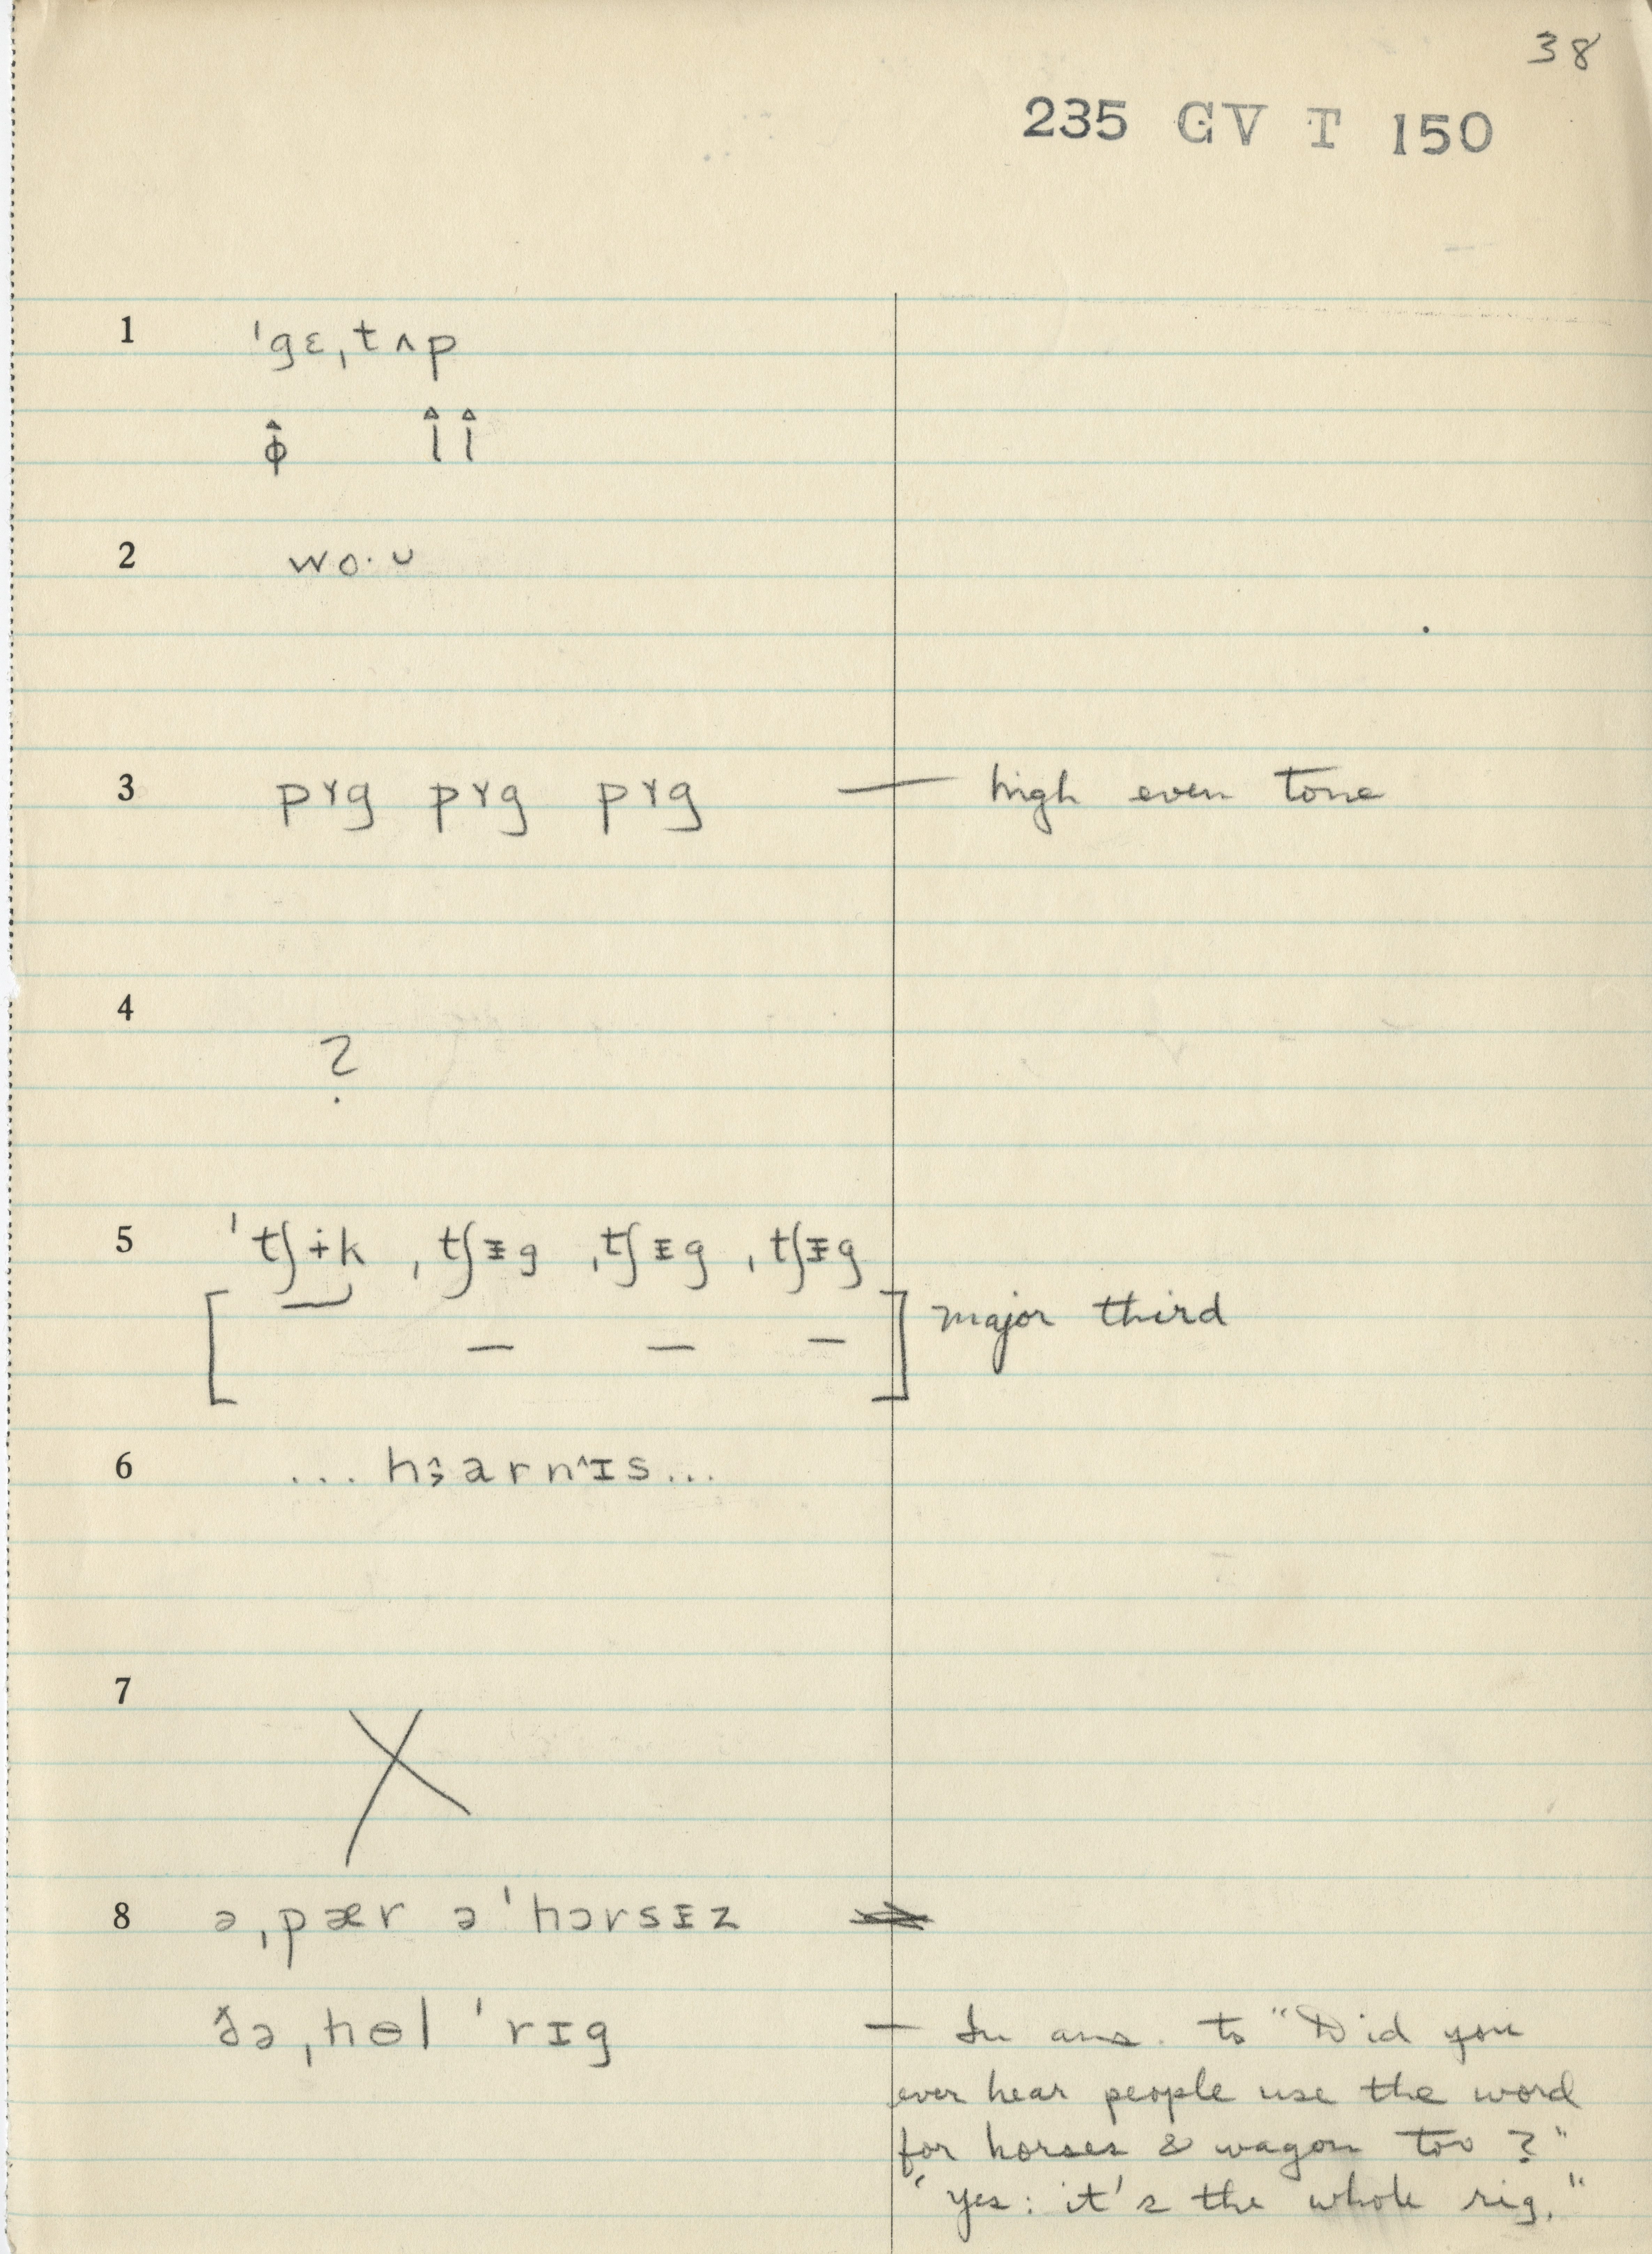 38
235 GV T 150
1 ˈgɛˌtʌp
ɸ̂ l̂ l̂
2 wo·ᴜ
3 pɤg pɤg pɤg — high even tone
4 ?
5 ˈtʃɨk ˌtʃᵻg ˌtʃᵻg ˌtʃᵻg
[ — — — ] major third
6 ... hɜarnɪs...
7 X
8 əˌpær əˈhɔrsᵻz
ðəˌhɵl ˈrɪg — In ans. to "Did you
ever hear people use the word
for horses & wagon too ?"
"Yes : it's the whole rig."